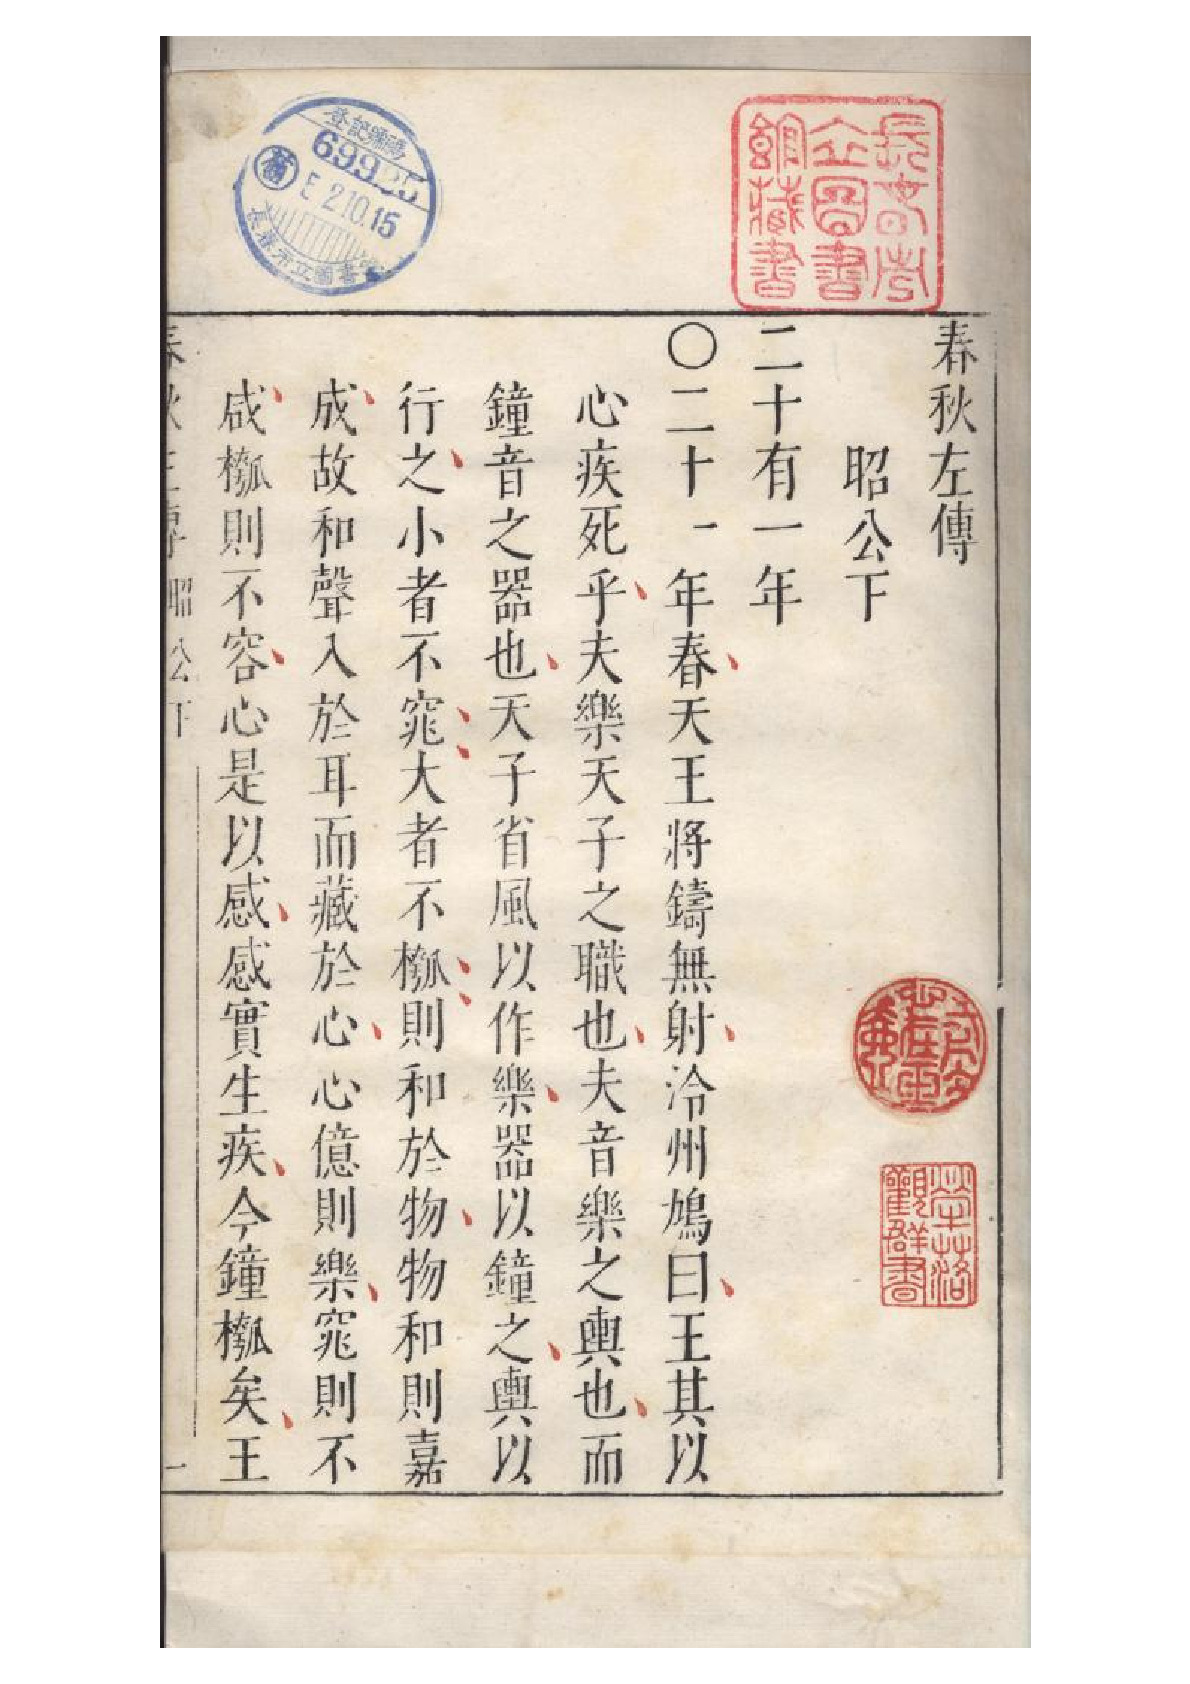 春秋左傳
昭公下
二十有一年
〇二十一年春天王將鑄無射泠州鳩曰王其以
心疾死乎夫樂天子之職也夫音樂之輿也而
鐘音之器也天子省風以作樂器以鐘之輿以
行之小者不窕大者不槬則和於物物和則嘉
成故和聲入於耳而藏於心心億則樂窕則不
咸槬則不容心是以感感實生疾今鐘槬矣王
春秋左傳 昭公下 一
長春市立圖書館藏書
登記號碼
69925
E 2.10.15
長春市立圖書館
犖落觀群書